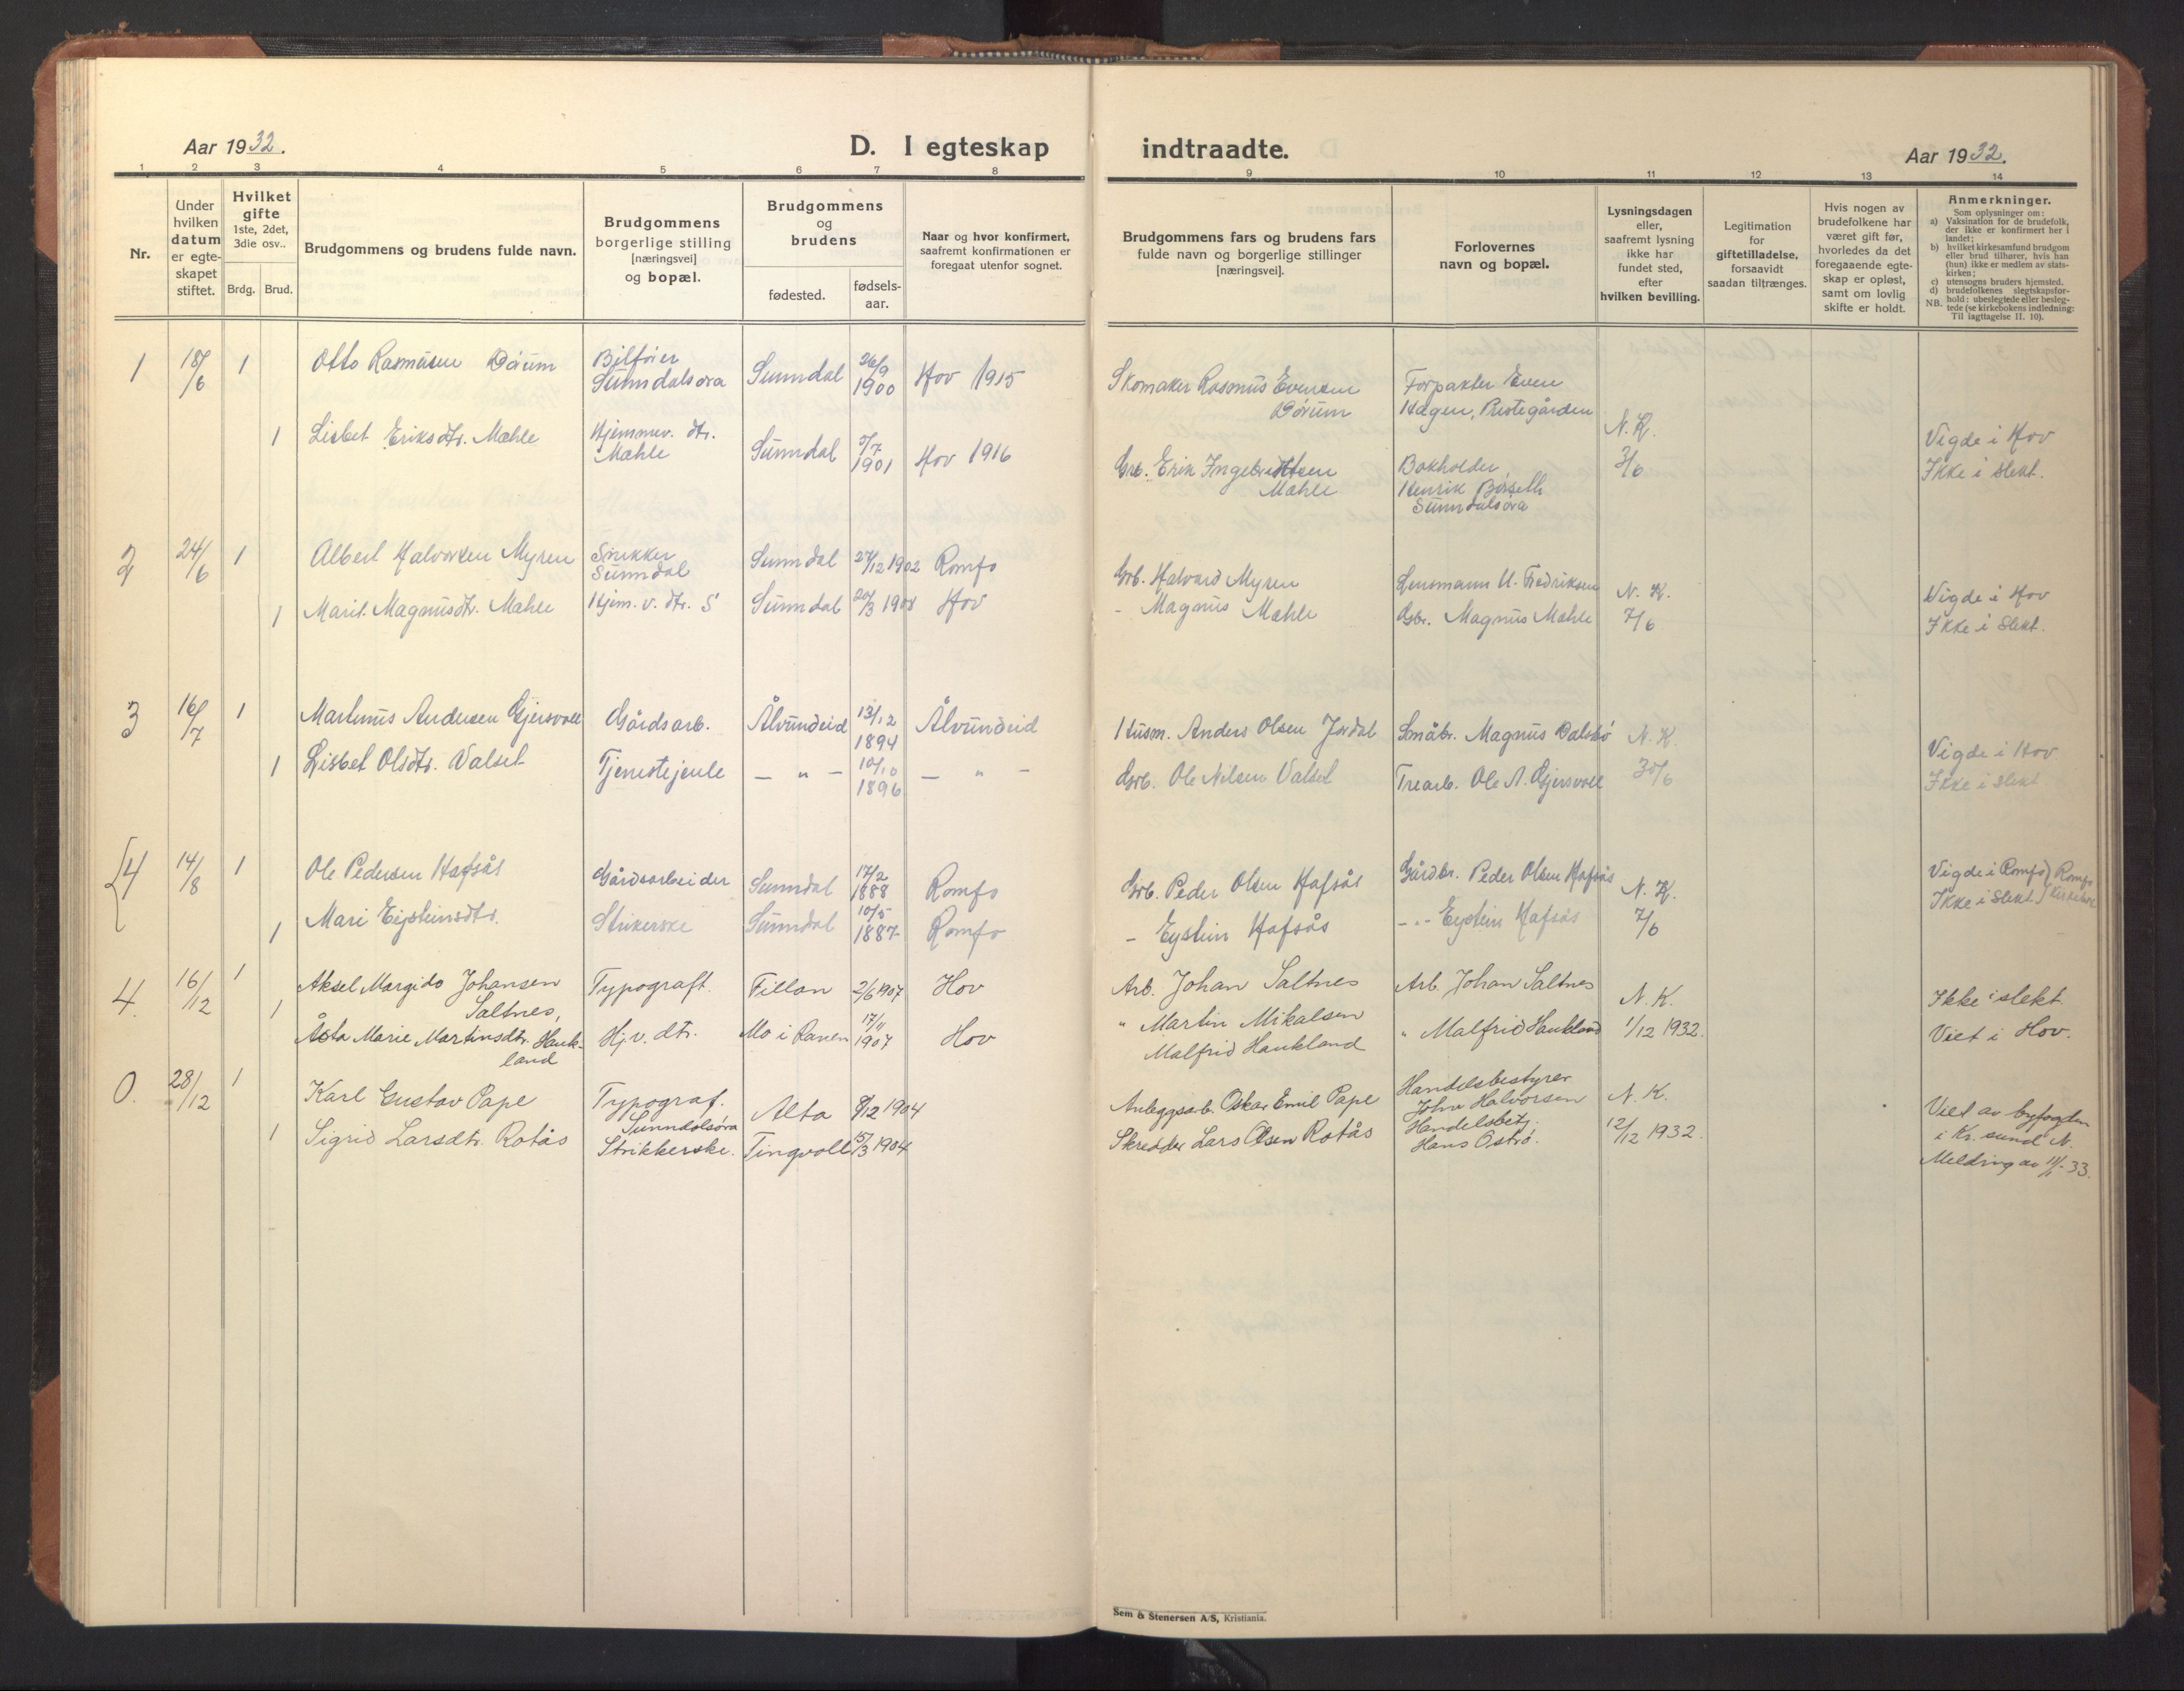 Aar 1932.
D. I egteskap indtraadte.
Aar 1932.
1 2 3 4 5 6 7 8 9 10 11 12 13 14
Nr.
Under
hvilken
datum
er egte-
skapet
stiftet.
Hvilket
gifte
1ste, 2det,
3die osv..
Brdg. Brud.
Brudgommens og brudens fulde navn.
Brudgommens
borgerlige stilling
[næringsvei]
og bopæl.
Brudgommens
og
brudens
fødested.
fødsels-
aar.
Naar og hvor konfirmert,
saafremt konfirmationen er
foregaat utenfor sognet.
Brudgommens fars og brudens fars
fulde navn og borgerlige stillinger
[næringsvei].
Forlovernes
navn og bopæl.
Lysningsdagen
eller,
saafremt lysning
ikke har
fundet sted,
efter
hvilken bevilling.
Legitimation
for
giftetilladelse,
forsaavidt
saadan tiltrænges.
Hvis nogen av
brudefolkene har
været gift før,
hvorledes da det
foregaaende egte-
skap er opløst,
samt om lovlig
skifte er holdt.
Anmerkninger.
Som oplysninger om:
a) Vaksination for de brudefolk,
der ikke er konfirmert her i
landet;
b) hvilket kirkesamfund brudgom
eller brud tilhører, hvis han
(hun) ikke er medlem av stats-
kirken;
c) utensogns bruders hjemsted.
d) brudefolkenes slegtskapsfor-
hold: ubeslegtede eller besleg-
tede (se kirkebokens indledning:
NB. Til iagttagelse II. 10).
1 18/6 1 Otto Rasmusen Dørum
Bileier
Sunndalsøra
Sunndal 26/9
1900 Hov 1915
Skomaker Rasmus Evensen
Dørum
Forpakter Even
Hagen, Prestegården
1 Lisbet Eriksdtr. Mæhle
Hjemmev. dtr.
Mæhle
Sunndal 5/7
1901 Hov 1916
Grb. Erik Ingebrektsen
Mæhle
Bokholder
Henrik Børseth
Sunndalsøra
N. K.
3/6
Vigde i Hov
Ikke i slekt.
2 24/6 1 Albert Halvorsen Myren
Snekker
Sunndal
Sunndal 27/12 1902 Romfo
Grb. Halvard Myren
Lensmann U. Fredriksen
1 Marit Magnusdtr. Mæhle
Hjem. v. dtr. S
Sunndal 20/3 1908 Hov
- Magnus Mæhle
Gbr. Magnus Mæhle
N. K.
7/6
Vigde i Hov
Ikke i slekt.
3 16/7 1 Martinus Andersen Gjersvoll
Gårdsarb.
Ålvundeid 13/12
1894 Ålvundeid
Husm. Anders Olsen Jordal
Småbr. Magnus Dalsbø
1 Lisbet Olsdtr. Valset
Tjenestejente
— " — 10/10
1896 — " —
Grb. Ole Nilsen Valset
Trearb. Ole A. Gjersvoll
N. K.
30/6
Vigde i Hov
Ikke i slekt
4 14/8 1 Ole Pedersen Hafsås
Gårdsarbeider
Sunndal 17/2
1888 Romfo
Grb. Peder Olsen Hafsås
Gårdbr. Peder Olsen Hafsås
1 Mari Eysteinsdtr.
Strikerske
Sunndal 10/5
1887 Romfo
- Eystein Hafsås
-"- Eystein Hafsås
N. K.
7/6
Vigde i Romfo Romfo
Ikke i slekt kirkebok
4. 16/12 1 Aksel Margido Johansen
Saltnes,
Typograf.
Fillan 2/6 1907 Hov
Arb. Johan Saltnes
Arb. Johan Saltnes
1 Åsta Marie Martinsdtr. Hauk-
land
Hj.v. dtr.
Mo i Ranen 17/11
1907 Hov
" Martin Mikalsen
Malfrid Haukland
" Malfrid Haukland
N. K.
1/12 1932.
Ikke i slekt
Viet i Hov.
0. 28/12 1 Karl Gustav Pape
Typograf.
Sunndalsøra
Alta 8/12 1904
Anleggsarb. Oskar Emil Pape
Handelsbestyrer
John Halvorsen
1 Sigrid Larsdtr. Rotås
Strikkerske.
Tingvoll 15/3 1904
Skredder Lars Olsen Rotås
Handelsbetj.
Hans Østrø.
N. K.
12/12 1932.
Viet av byfogden
i Kr.sund N.
Melding av 11/1-33.
Sem & Stenersen A/S, Kristiania.